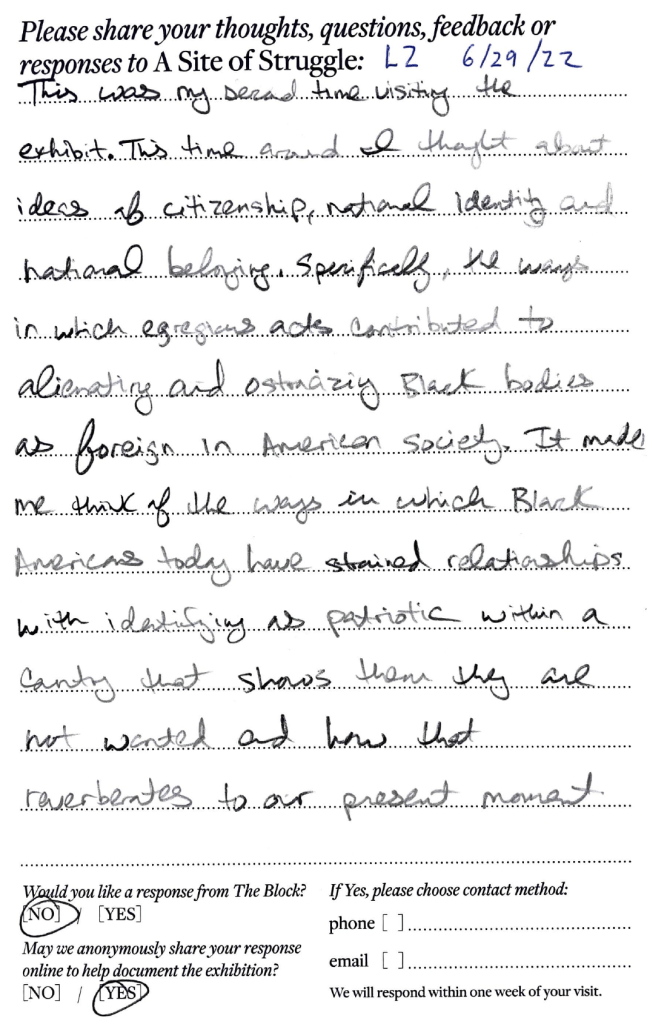 Please share your thoughts, questions, feedback or
responses to A Site of Struggle: LZ 6/29/22
This was my second time visiting the
exhibit. This time around I thought about
ideas of citizenship, national identity and
national belonging. Specifically, the ways
in which egregious acts contributed to
alienating and ostracizing Black bodies
as foreign in American society. It made
me think of the ways in which Black
Americans today have stained relationships
with identifying as patriotic within a
country that shows them they are
not wanted and how that
reverberates to our present moment
Would you like a response from The Block?
[NO] / [YES]
May we anonymously share your response
online to help document the exhibition?
[NO] / [YES]
If Yes, please choose contact method:
phone [ ]
email [ ]
We will respond within one week of your visit.